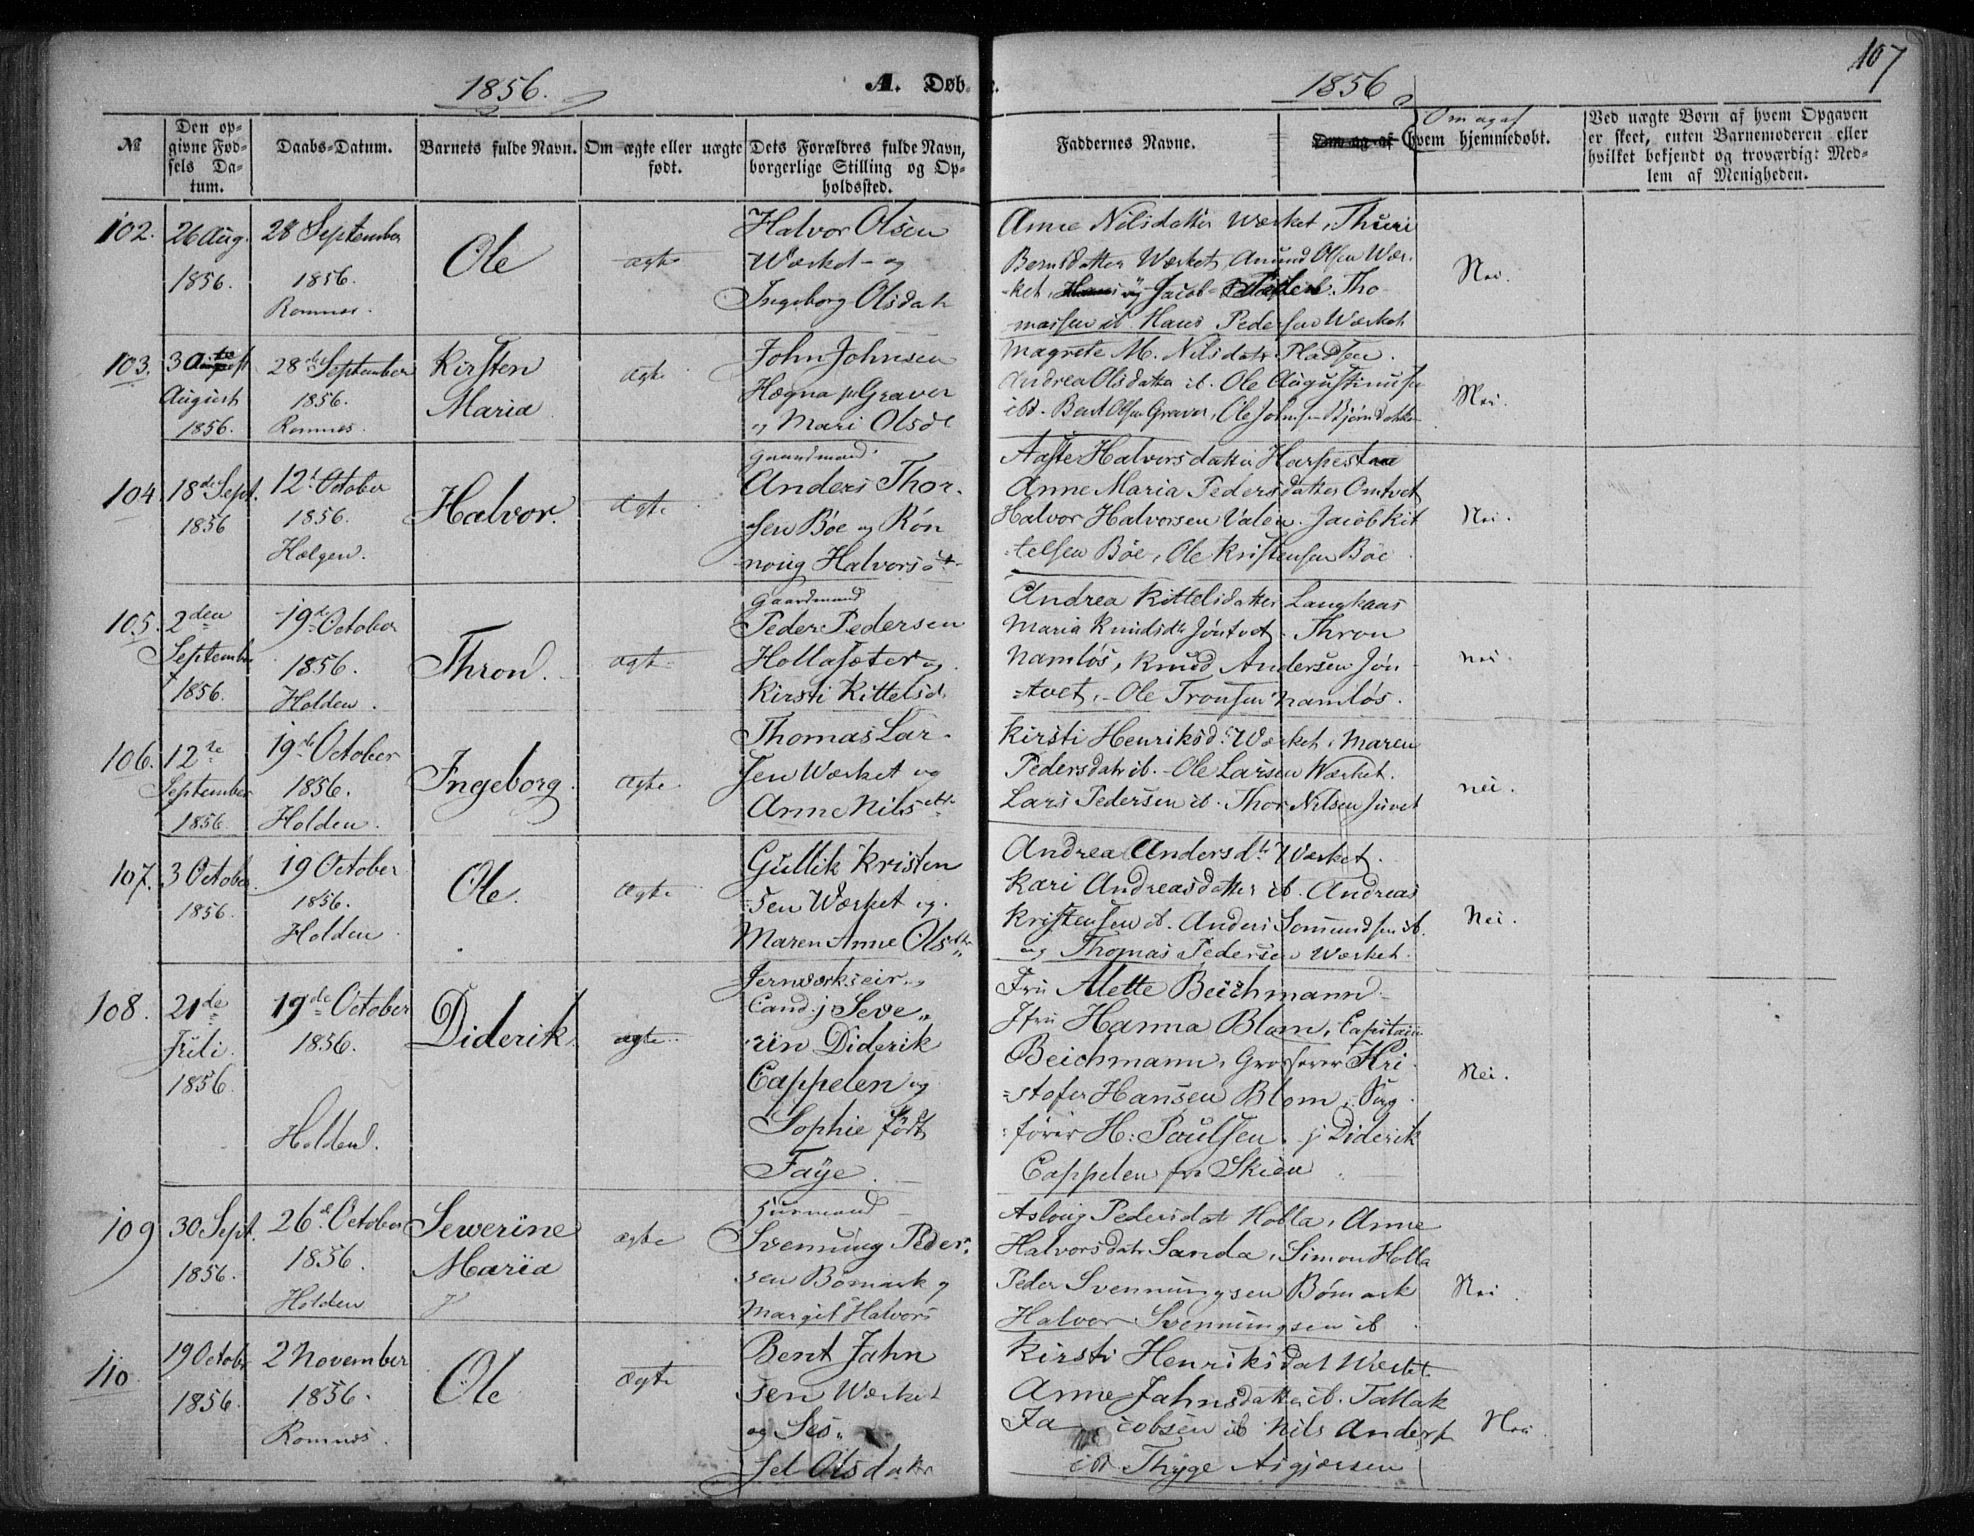 107
1856. A. Døb- e. 1856
№
Den opgivne Fødsels Datum.
Daabs-Datum.
Barnets fulde Navn.
Om ægte eller uægte født.
Dets Forældres fulde Navn, borgerlige Stilling og Opholdssted.
Faddernes Navne.
Om og af hvem hjemmedøbt.
Ved uægte Børn af hvem Opgaven er skeet, enten Barnemoderen eller hvilket bekjendt og troværdigt Medlem af Menigheden.
102.
26 Aug.
1856.
28 September
1856.
Romnes.
Ole
ægte
Halvor Olsen
Værket og
Ingeborg Olsdatr
Anne Nilsdatter Værket, Thuri
Berntsdatter Værket, Anund Olsen Vær-
ket, Jacob Tho-
massen ib. Hans Pedersen Værket
Nei.
103.
3
August
1856.
28de September
1856.
Romnes.
Kirsten
Maria
ægte
John Johnsen
Hægna p Graver
og Mari Olsdt
Magrete M. Nilsdatr Pladsen.
Andrea Olsdatter ib. Ole Augustinusen
ibd. Bent Olsen Graver, Ole Johnsen
Nei.
104
18de Sept.
1856
12t October
1856.
Hælgen.
Halvor.
ægte
Gaardmand
Anders Thor-
sen Bøe og Røn
noug Halvorsdt
Aaste Halvorsdatter Harpestaa
Anne Maria Pedersdatter Omtvet
Halvor Halvorsen Valen. Jacob Kit
telsen Bøe, Ole Kristensen Bøe
Nei.
105.
2den
September
1856.
19de October
1856.
Holden.
Thron.
ægte
Gaardmand
Peder Pedersen
Hollasæter og
Kirsti Kittelsd.
Andrea Kittelsdatter Langkaas
Maria Knudsdt Jøntvet. Thron
Namløs, Knud Andersen Jøn-
tvet, Ole Tronsen Namløs.
nei.
106.
12te
September
1856.
19de October
1856.
Holden.
Ingeborg.
ægte.
Thomas Lar-
sen Værket og
Anne Nilsdtr
Kirsti Henriksdt Værket, Maren
Pedersdatr ib. Ole Larsen Værket.
Lars Pedersen ib. Thor Nilsen Juvet
nei.
107.
3 October
1856.
19 October
1856.
Holden
Ole.
ægte
Gullik Kristen
sen Værket og
Maren Anne Olsdtr
Andrea Andersdtr Værket.
Kari Andreasdatter ib. Andreas
Kristensen ib. Anders Somundsen ib.
og Thomas Pedersen Værket.
Nei.
108.
21de
Juli.
1856.
19de October
1856.
Holden.
Diderik
ægte
Jernværkseier
Cand. j Seve
rin Diderik
Cappelen og
Sophie født
Faye.
Fru Alette Beichmann
Jfru Hanna Blom, Capitain
Beichmann, Grosserer Kri
stofer Hansen Blom,
fører H: Poulsen. j Diderik
Cappelen fra Skien
Nei.
109
30 Sept.
1856.
26de October
1856.
Holden
Sewerine
Maria
ægte
Husmand
Svenning Peder-
sen Bømark og
Margit Halvors
Aslöug Pedersdat Holla, Anne
Halvorsdatr Sanda, Simon Holla
Peder Svenningsen Bømark
Halvor Svenningsen ib
Nei.
110
19 Octobr.
1856.
2 November
1856.
Romnes.
Ole
Ægte
Bent Jahn
sen Værket
og Ses
sel Olsdatr
Kirsti Henriksdat Værket
Anne Jahnsdatter ib. Tallak
Ja cobsen ib Nils Anders
ib Thyge Asgjersen
Nei